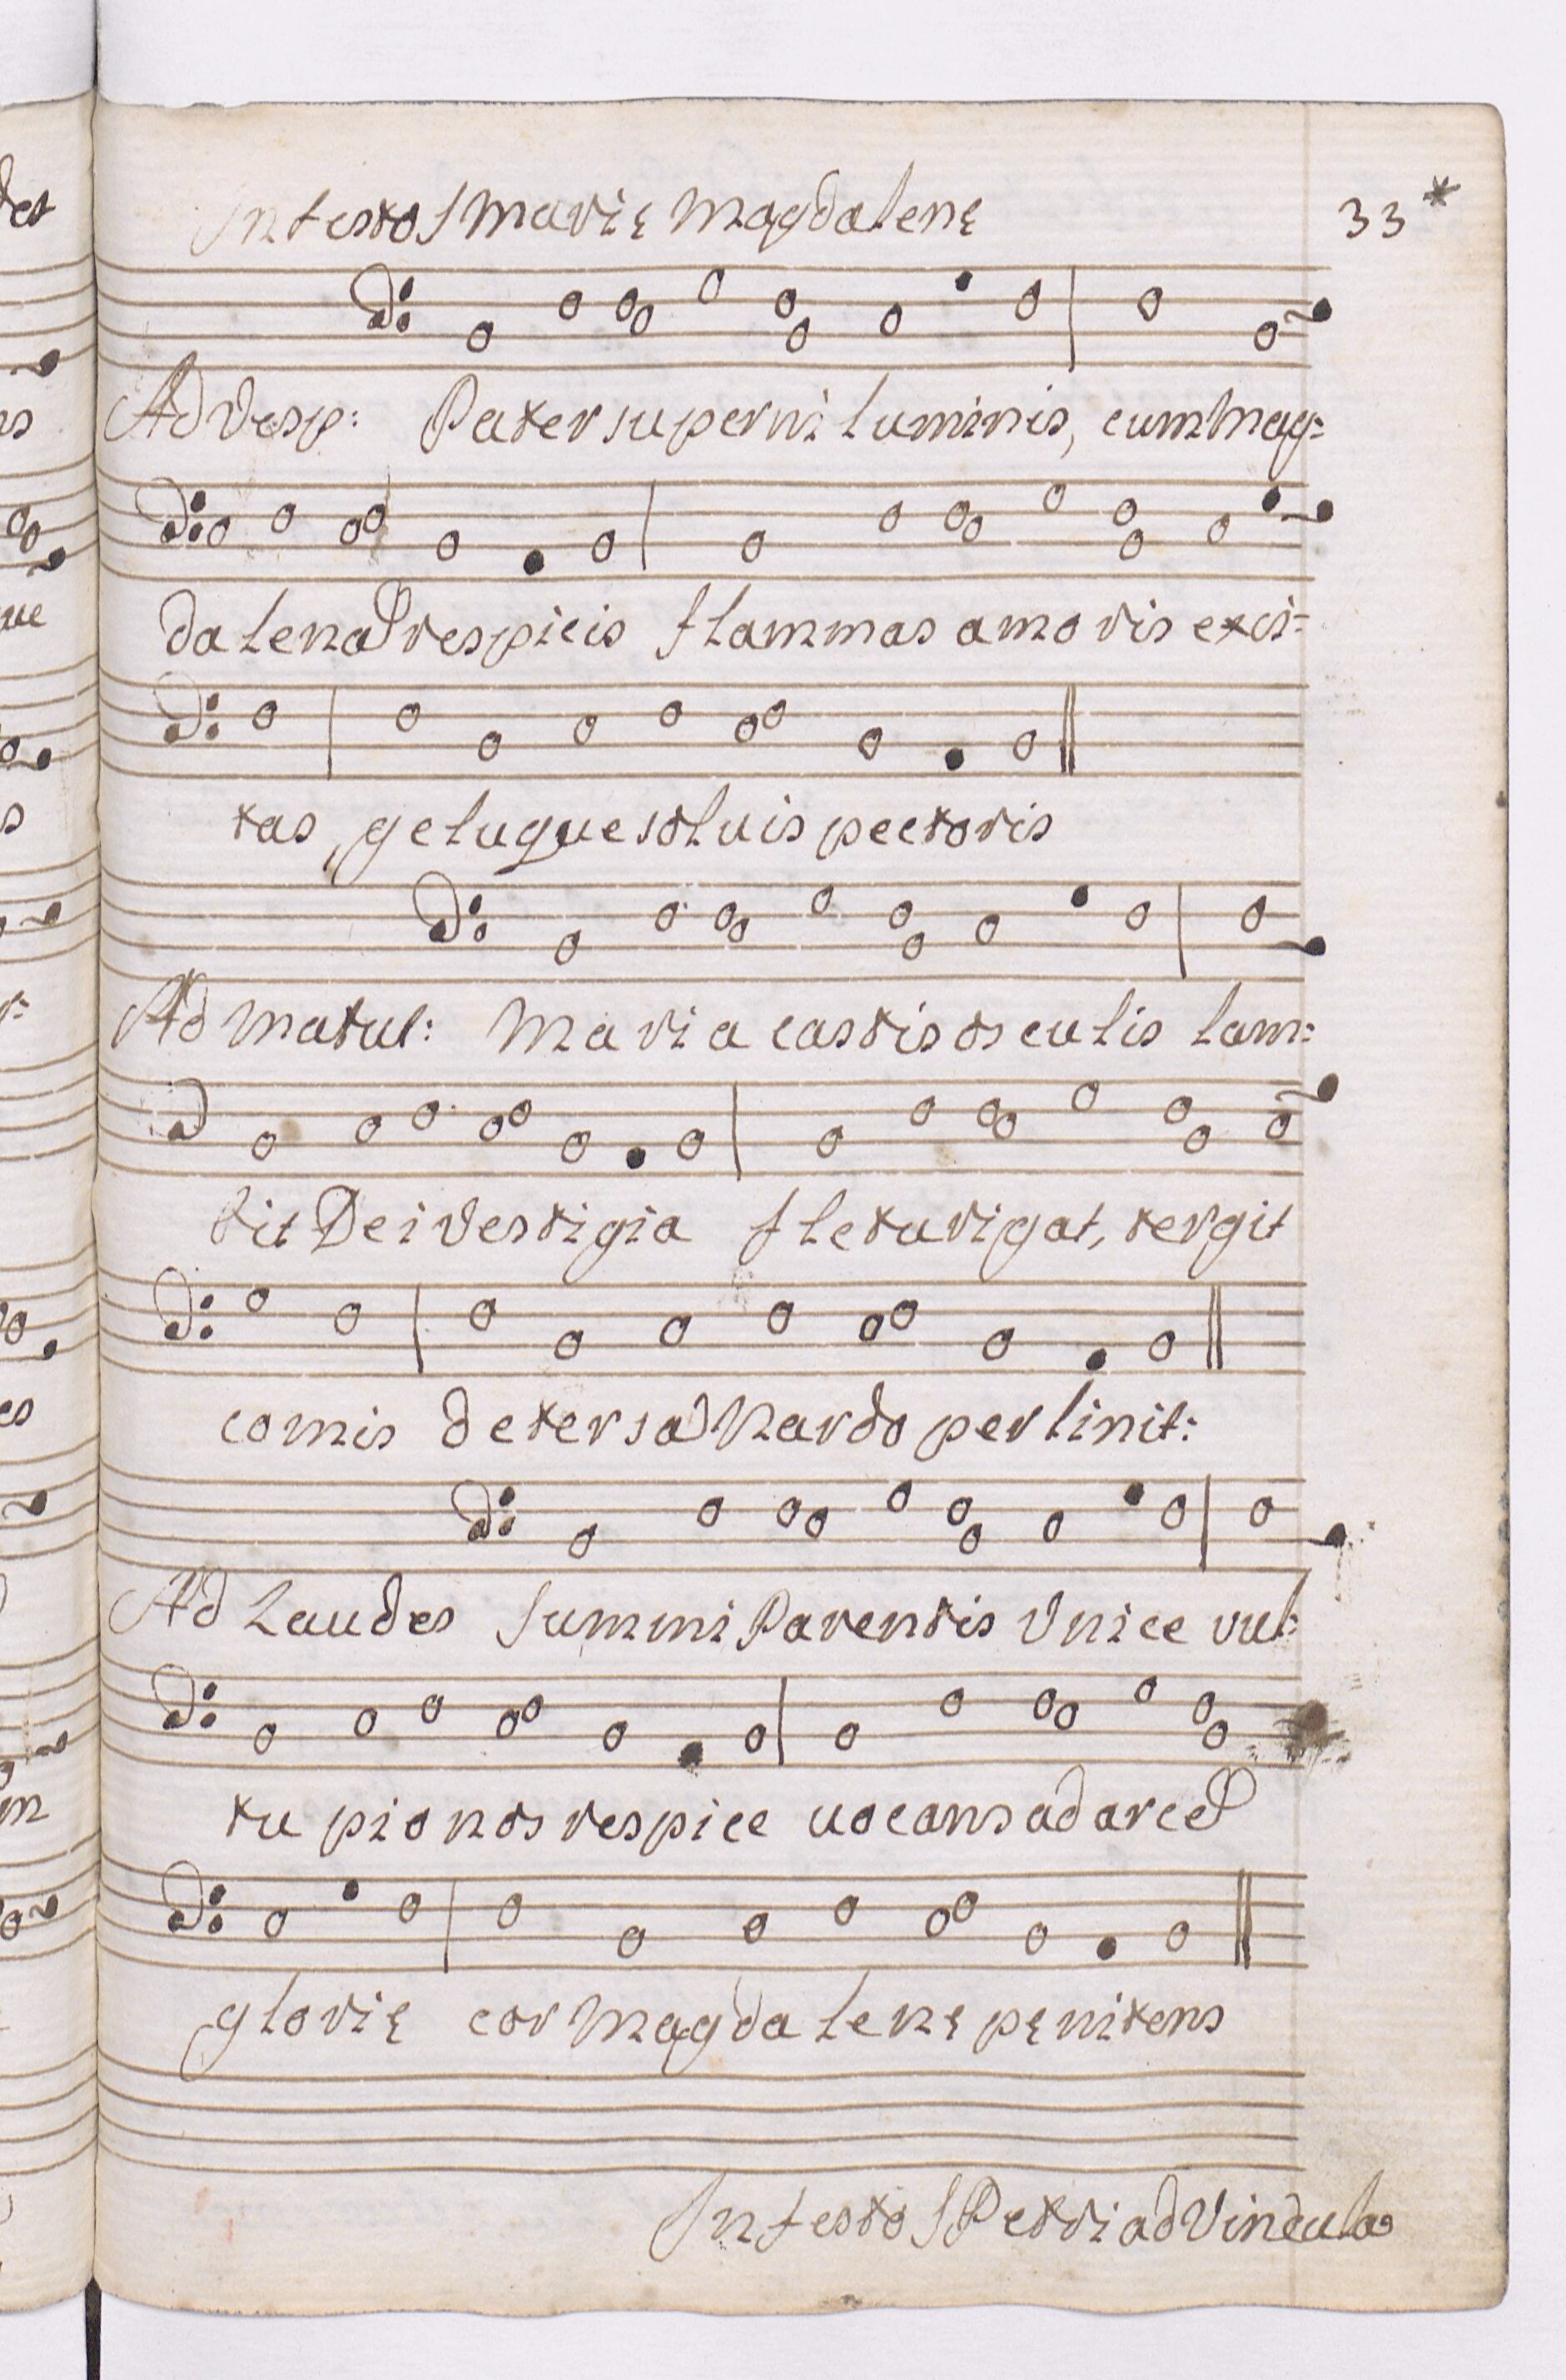 In festo S Marię Magdalenę
33 *
Ad Vesp: Pater superni luminis, cum Mag:
dalena respicis flammas amoris exci:
tas, geluque soluis pectoris
Ad Matul: Maria castis osculis lam:
bit Dei Vestigia fletu rigat, tergit
comis detersa Nardo perlinit:
Ad Laudes Summi Parentis Vnice vul:
tu pio nos respice uocans ad arce
glorię cor Magdalenę pęnitens
In festo S Petri ad Vincula